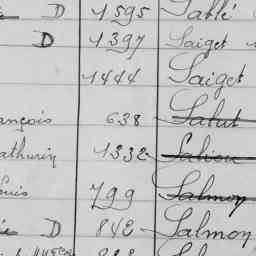 D 1595 Sablé
D 1397 Saiget
1444 Saiget
ançois 638 Salut
athurin 1332 Saliou
ouis 799 Salmon
D 842 Salmon